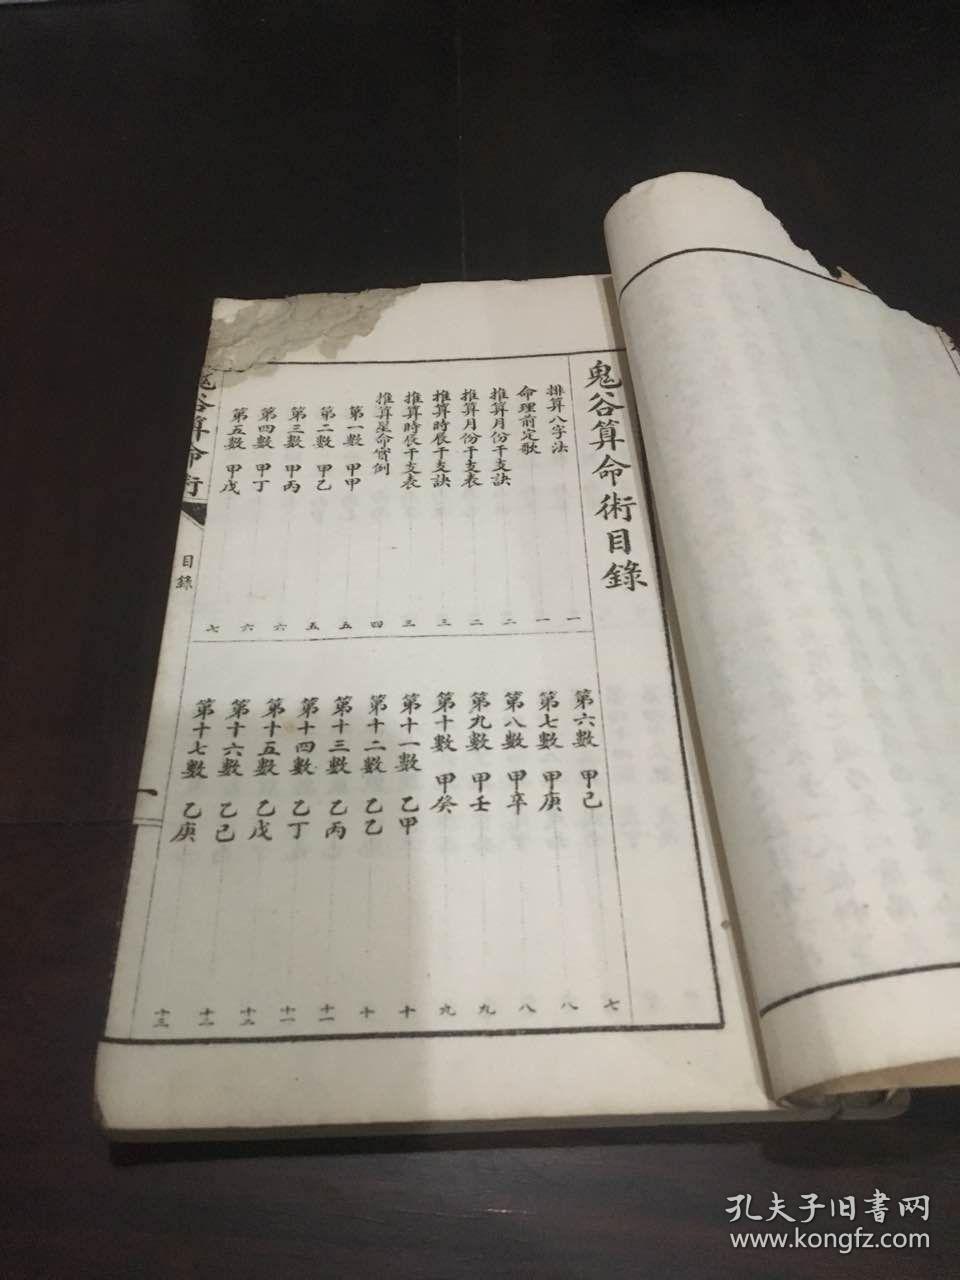 鬼谷算命術目錄
排算八字法 一
命理前定歌 一
推算月份干支訣 二
推算月份干支表 二
推算時辰干支訣 三
推算時辰干支表 三
推算星命實例 四
第一數 甲甲 五
第二數 甲乙 五
第三數 甲丙 六
第四數 甲丁 六
第五數 甲戊 七
第六數 甲己 七
第七數 甲庚 八
第八數 甲辛 八
第九數 甲壬 九
第十數 甲癸 九
第十一數 乙甲 十
第十二數 乙乙 十
第十三數 乙丙 十一
第十四數 乙丁 十一
第十五數 乙戊 十二
第十六數 乙己 十二
第十七數 乙庚 十三
鬼谷算命術
目錄
一
孔夫子旧書网
www.kongfz.com